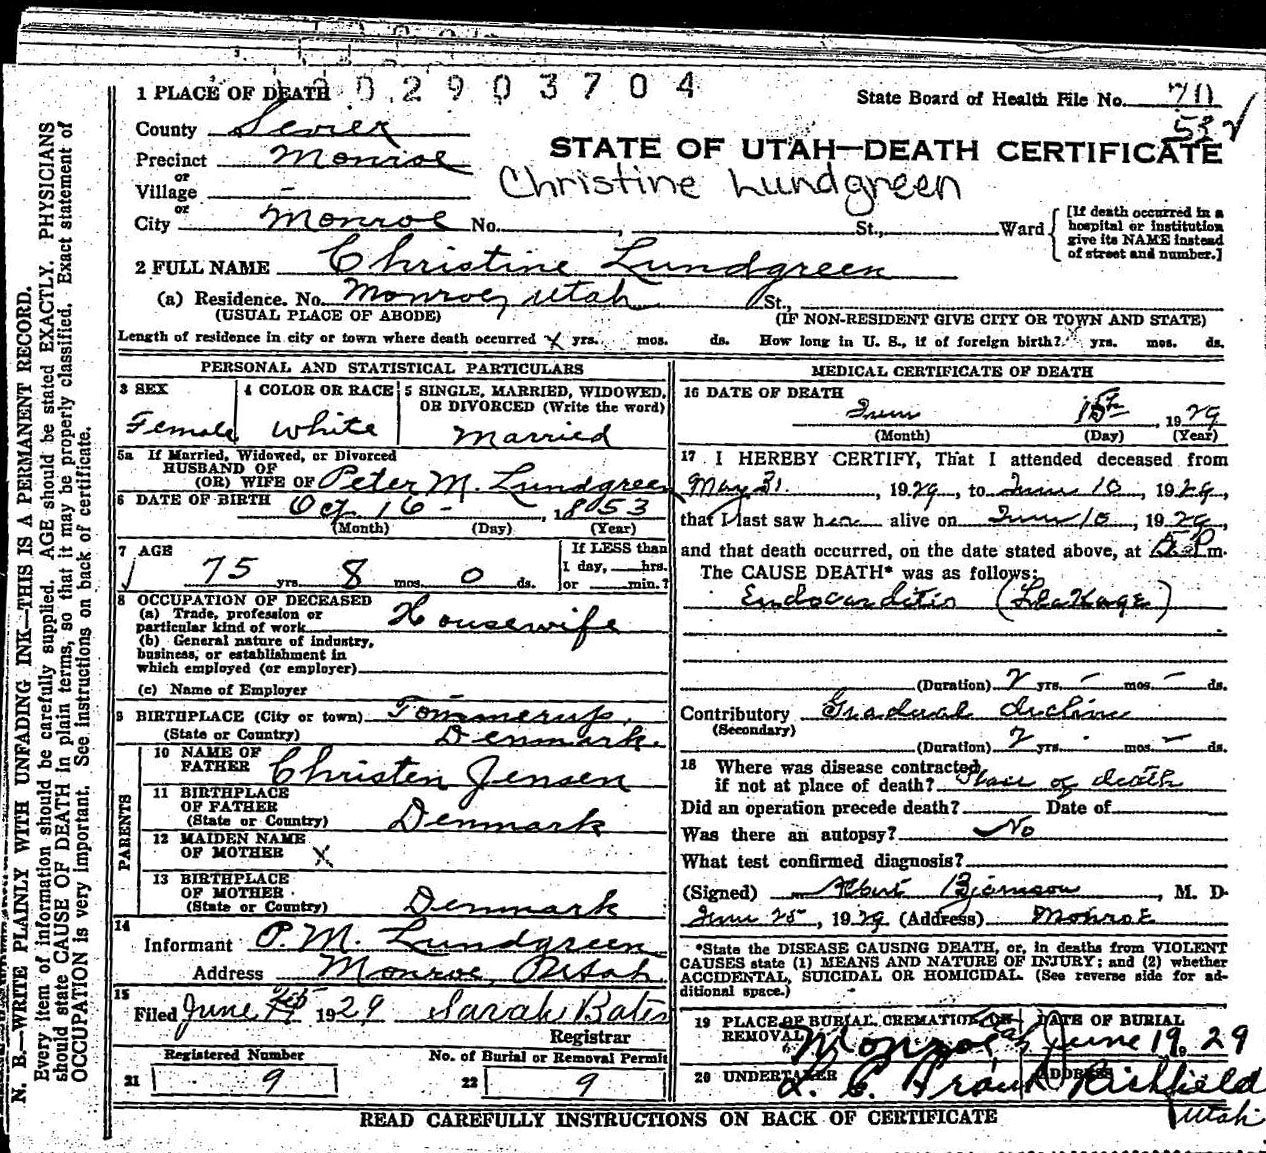 0 2 9 0 3 7 0 4
1 PLACE OF DEATH
State Board of Health File No. 70
532
County Sevier
STATE OF UTAH—DEATH CERTIFICATE
Precinct Monroe
or
Village -
Christine Lundgreen
or
City Monroe No. , St., Ward
[If death occurred in a
hospital or institution
give its NAME instead
of street and number.]
2 FULL NAME Christine Lundgreen
(a) Residence. No. Monroe, Utah St.,
(USUAL PLACE OF ABODE) (IF NON-RESIDENT GIVE CITY OR TOWN AND STATE)
Length of residence in city or town where death occurred X yrs. mos. ds. How long in U. S., if of foreign birth? yrs. mos. ds.
PERSONAL AND STATISTICAL PARTICULARS
3 SEX
Female
4 COLOR OR RACE
White
5 SINGLE, MARRIED, WIDOWED,
OR DIVORCED (Write the word)
Married
5a If Married, Widowed, or Divorced
HUSBAND OF
(OR) WIFE OF Peter M. Lundgreen
6 DATE OF BIRTH Oct 16 - , 1853
(Month) (Day) (Year)
7 AGE
75 yrs. 8 mos. 0 ds.
If LESS than
1 day, hrs.
or min.?
8 OCCUPATION OF DECEASED
(a) Trade, profession or
particular kind of work Housewife
(b) General nature of industry,
business, or establishment in
which employed (or employer)
(c) Name of Employer
9 BIRTHPLACE (City or town) Tommerup,
(State or Country) Denmark.
PARENTS
10 NAME OF
FATHER Christen Jensen
11 BIRTHPLACE
OF FATHER
(State or Country) Denmark
12 MAIDEN NAME
OF MOTHER X
13 BIRTHPLACE
OF MOTHER
(State or Country) Denmark
14
Informant P. M. Lundgreen
Address Monroe, Utah
15
Filed June 1929 Sarah Bates
Registrar
Registered Number
21 9
No. of Burial or Removal Permit
22 9
MEDICAL CERTIFICATE OF DEATH
16 DATE OF DEATH
June 15th, 1929
(Month) (Day) (Year)
17 I HEREBY CERTIFY, That I attended deceased from
May 31. , 1929, to June 10, 1929,
that I last saw her alive on June 10, 1929,
and that death occurred, on the date stated above, at 5 P m.
The CAUSE DEATH* was as follows:
Endocarditis (Leakage)
(Duration) 2 yrs. - mos. - ds.
Contributory Gradual decline
(Secondary)
(Duration) 2 yrs. mos. - ds.
18 Where was disease contracted
if not at place of death? Place of death
Did an operation precede death? Date of
Was there an autopsy? No
What test confirmed diagnosis?
(Signed) Bjarnson, M. D.
June 25, 1929 (Address) Monroe
*State the DISEASE CAUSING DEATH, or, in deaths from VIOLENT
CAUSES state (1) MEANS AND NATURE OF INJURY; and (2) whether
ACCIDENTAL, SUICIDAL OR HOMICIDAL. (See reverse side for ad-
ditional space.)
19 PLACE OF BURIAL, CREMATION OR
REMOVAL Monroe
DATE OF BURIAL
June 19, 29
20 UNDERTAKER
ADDRESS
Richfield
Utah
READ CAREFULLY INSTRUCTIONS ON BACK OF CERTIFICATE
N. B.—WRITE PLAINLY WITH UNFADING INK—THIS IS A PERMANENT RECORD.
Every item of information should be carefully supplied. AGE should be stated EXACTLY. PHYSICIANS
should state CAUSE OF DEATH in plain terms, so that it may be properly classified. Exact statement of
OCCUPATION is very important. See instructions on back of certificate.